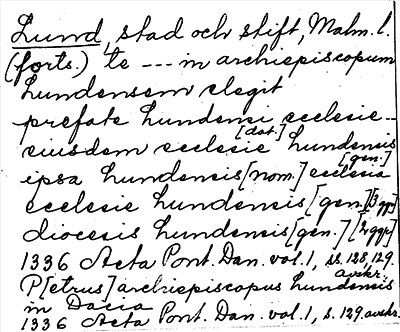 Lund, stad och stift, Malm. l.
(forts.) te --- in archiepiscopum
Lundensem elegit
prefate Lundensi ecclesie --
[dat.]
eiusdem ecclesie Lundensis
[gen.]
ipsa Lundensis [nom.] ecclesia
ecclesie Lundensis [gen.] [3 ggr]
diocesis Lundensis [gen.] [2 ggr]
1336 Acta Pont. Dan. vol. 1, s. 128, 129.
avskr.
P[etrus] archiepiscopus Lundensis
in Dacia
1336 Acta Pont. Dan. vol. 1, s. 129. avskr.